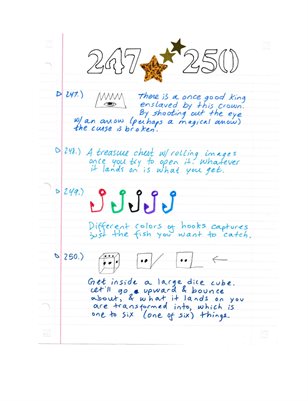 247 250
247.) There is a once good king
enslaved by this crown.
By shooting out the eye
w/ an arrow (perhaps a magical arrow)
the curse is broken.
248.) A treasure chest w/ rolling images
once you try to open it. Whatever
it lands on is what you get.
249.)
Different colors of hooks captures
just the fish you want to catch.
250.)
Get inside a large dice cube.
Let'll go upward & bounce
about, & what it lands on you
are transformed into, which is
one to six (one of six) things.